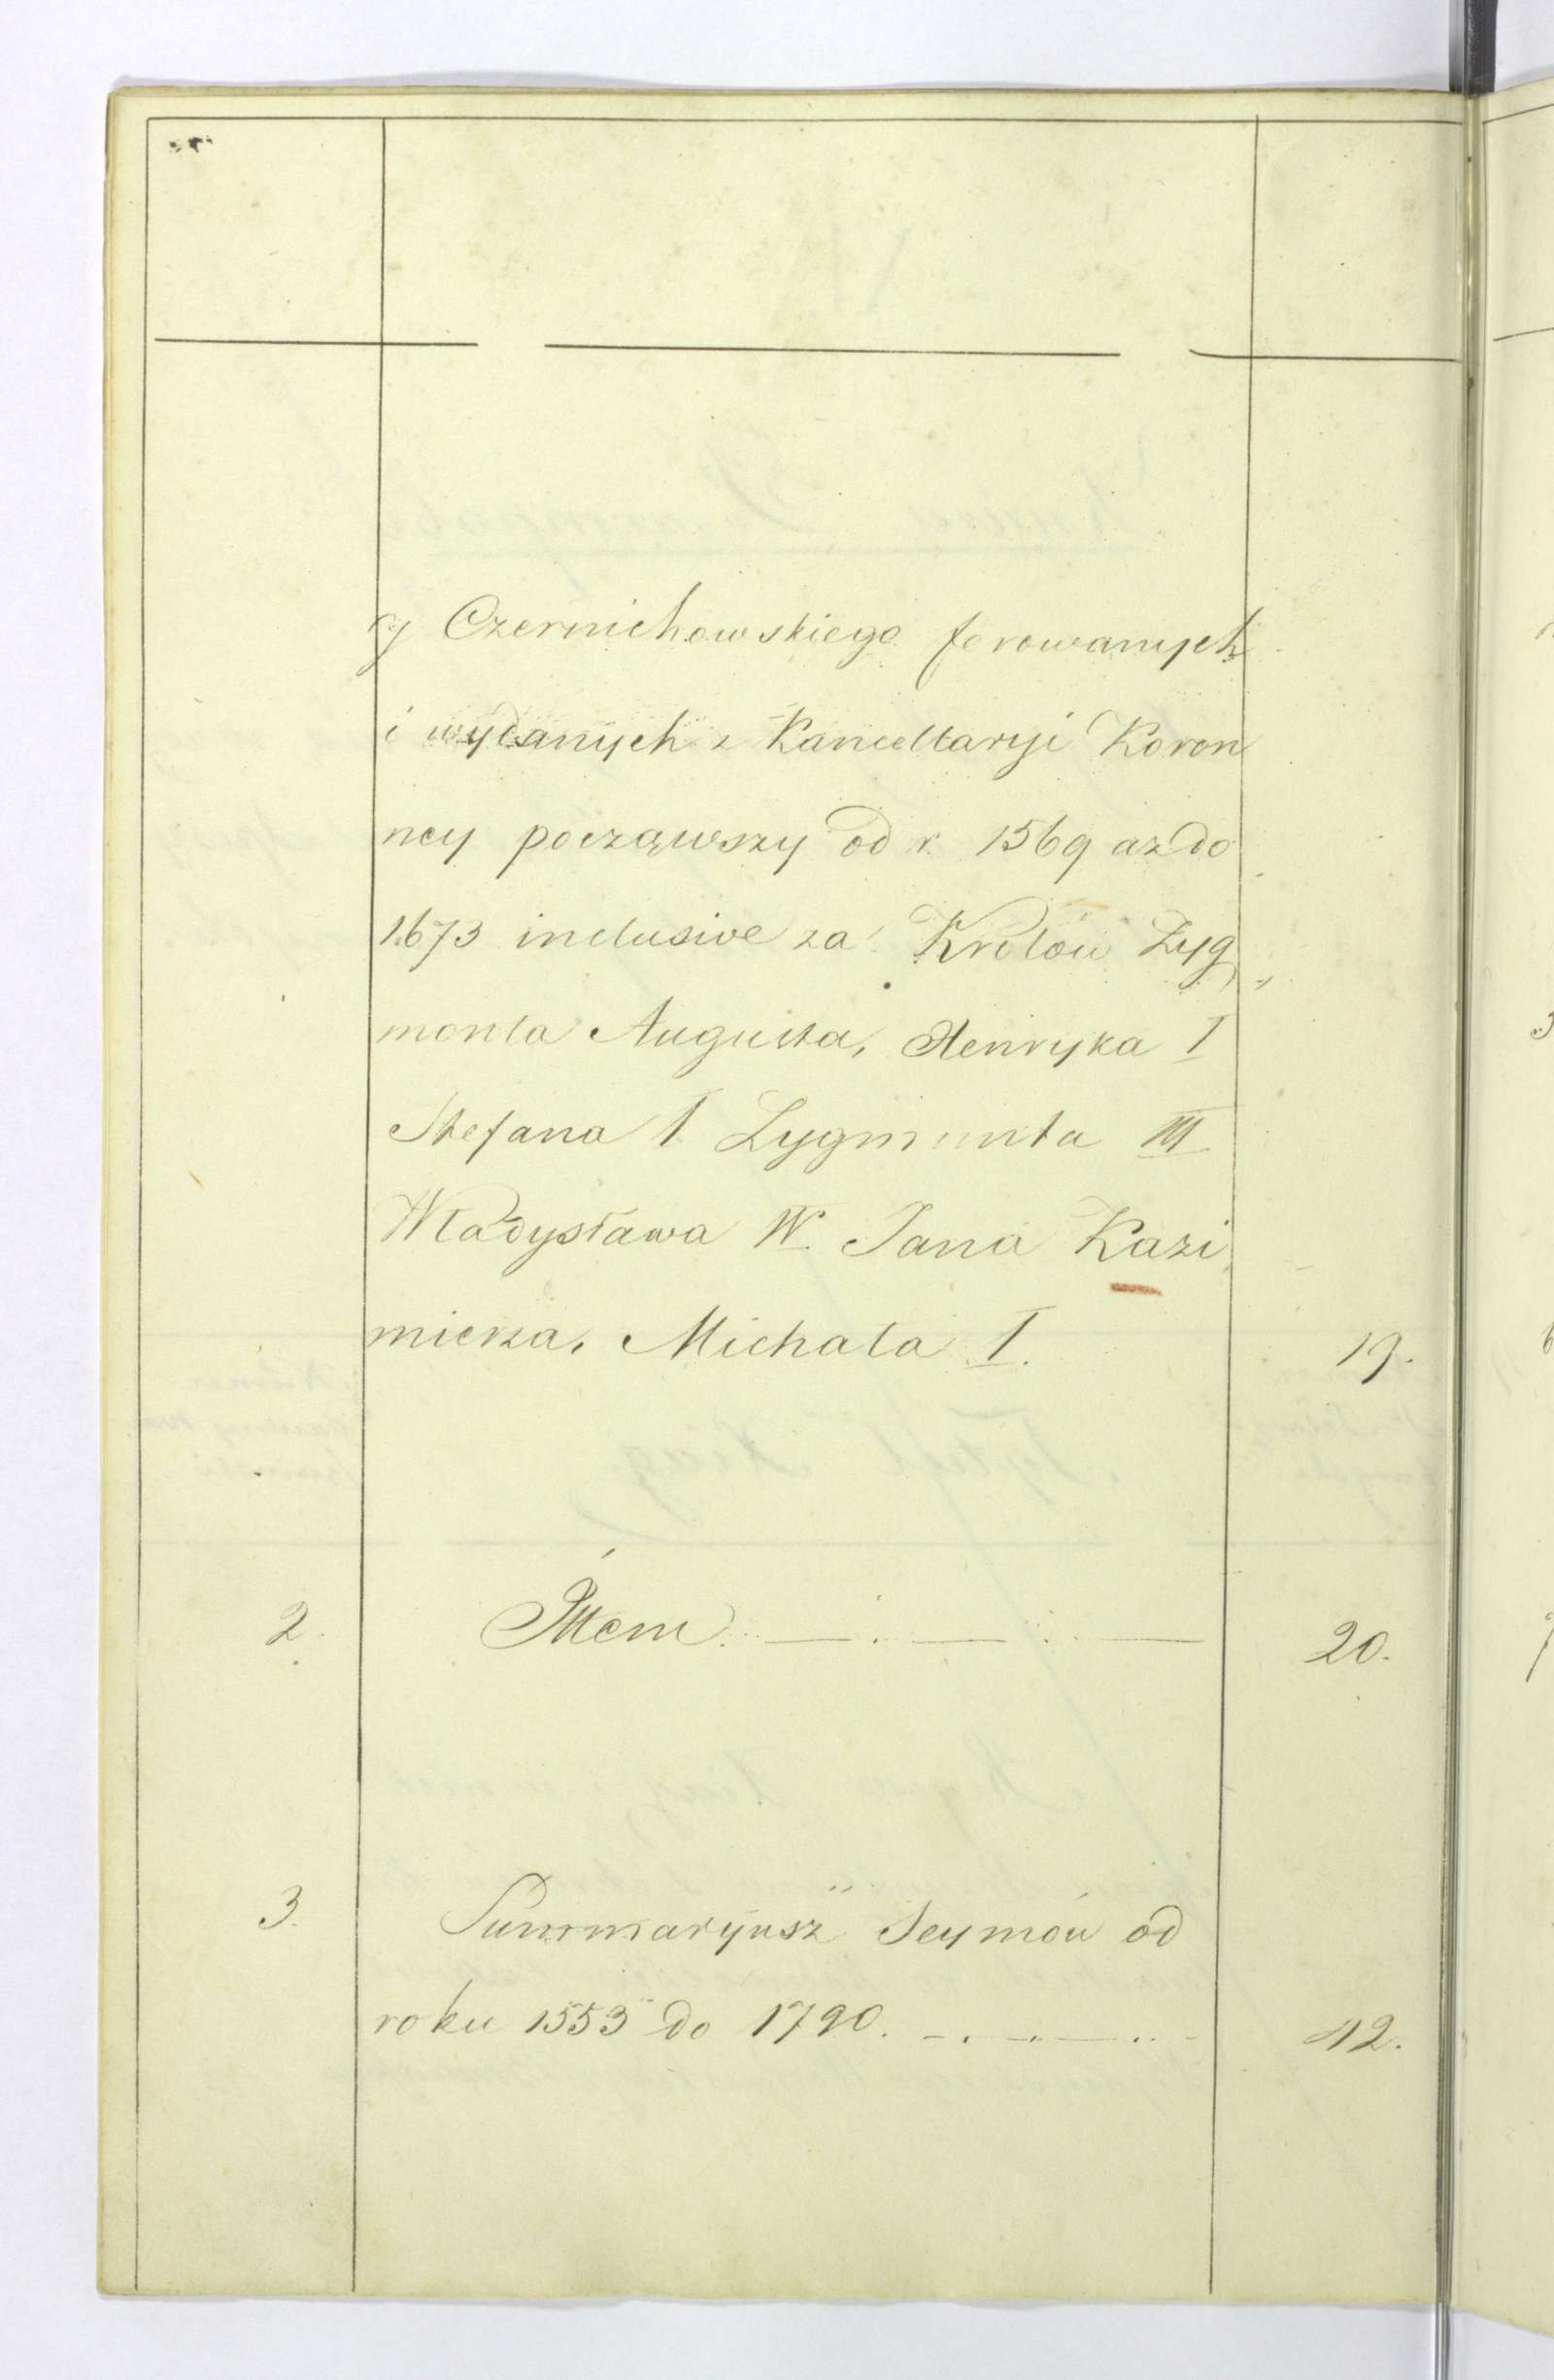 y Czernichowskiego ferowanych
i wydanych z Kancellaryi Koron
ney począwszy od r. 1569 aż do
1673 inclusive za Królów Zyg
monta Augusta, Henryka I
Stefana I Zygmunta III
Władysława IV. Jana Kazi
mierza, Michała I. 19.
2. Item. 20.
3. Summaryusz Seymów od
roku 1553 do 1790. 12.